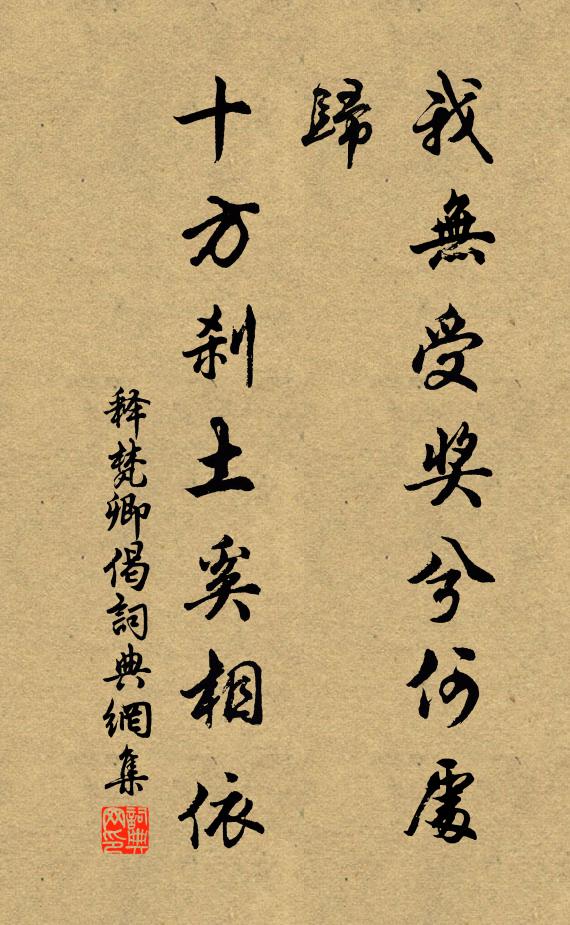 我無受奖兮何處
歸
十方刹土奚相依
释梵卿偈詞典網集
詞典网印